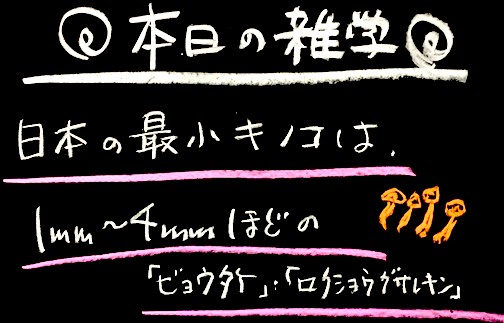 本日の雑学
日本の最小キノコは、
1mm〜4mmほどの
「ビョウタケ」・「ロクショウグサレキン」